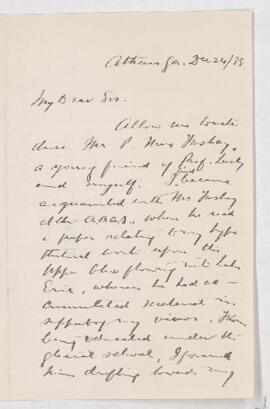 Athens Ga. Dec 24/88
My Dear Sir.
Allow me to intro
duce Mr P. Max Foshay,
a young friend of Prof.
and myself. I became
acquainted with Mr Foshay
at the A.A.A.S., when he read
a paper relating to my hypo
thetical work upon the
upper Ohio flowing into Lake
Erie, wherein he had ac-
cumulated evidence in
support of my views. From
being educated under the
glacial school, I found
him drifting towards my